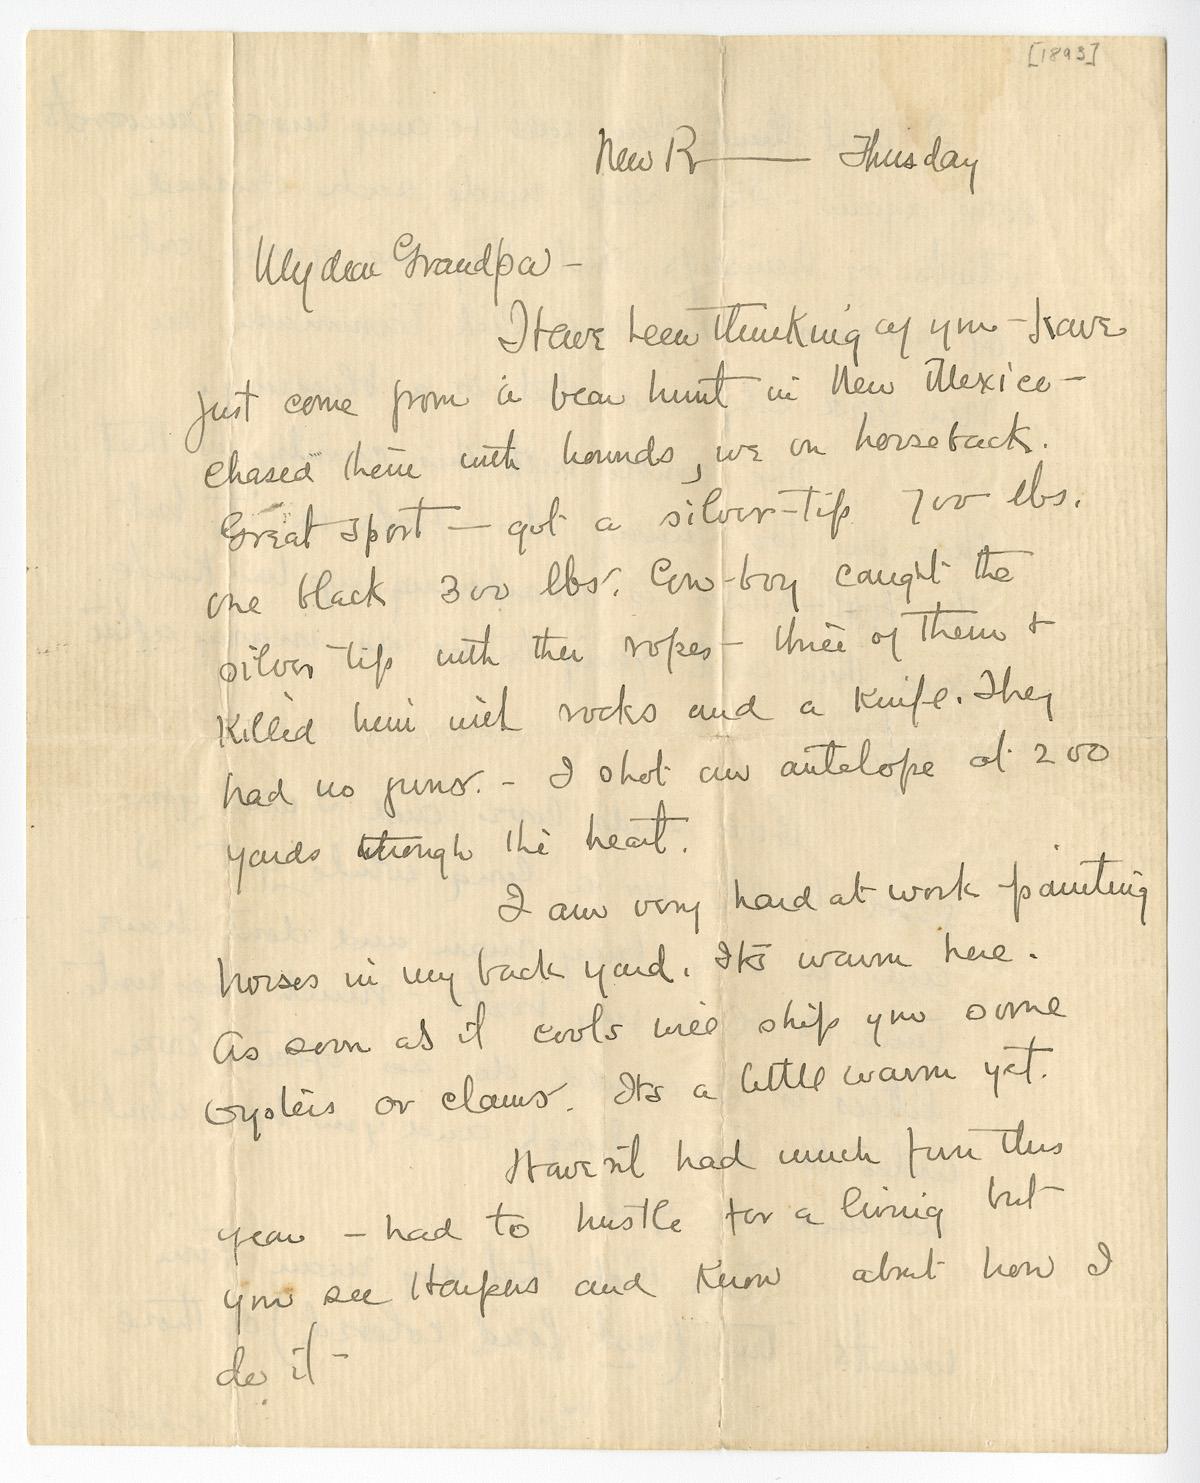 [1893]
New R—— Thusday
My dear Grandpa —
I Have been thinking of you – have
just come from a bear hunt in New Mexico –
chased them with hounds, we on horseback.
Great sport — got a silver-tip 700 lbs.
one black 300 lbs. Cow-boy caught the
silver tip with their ropes – three of them +
Killed him with rocks and a Knife. They
had no guns. – I shot an antelope at 200
yards through the heart.
I am very hard at work painting
horses in my back yard. Its warm here.
As soon as it cools will ship you some
Oysters or clams. Its a little warm yet.
Havesnt had much fun this
year – had to hustle for a living but
you see Harpers and Know about how I
do it –